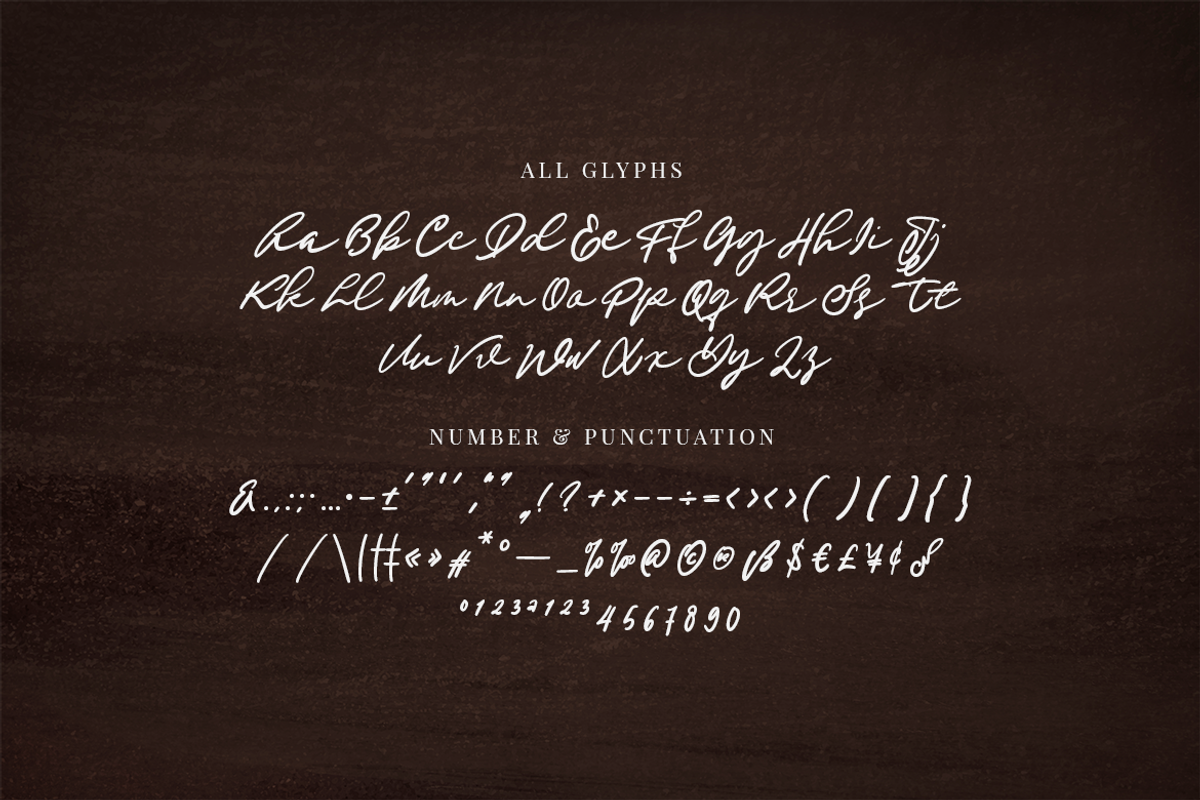 ALL GLYPHS
Aa Bb Cc Dd Ee Ff Gg Hh Ii Jj
Kk Ll Mm Nn Oo Pp Qq Rr Ss Tt
Uu Vv Ww Xx Yy Zz
NUMBER & PUNCTUATION
& . , : ; … • - ± ' " ' ' , “ ” „ ! ? + × − – ÷ = < > < > ( ) [ ] { }
/ / \ | ‡ « » # * ° — _ % ‰ @ © ß $ € £ ¥ ¢
0 1 2 3 1 2 3 4 5 6 7 8 9 0